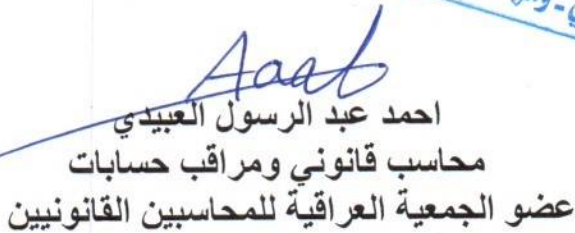 احمد عبد الرسول العبيدي
محاسب قانوني ومراقب حسابات
عضو الجمعية العراقية للمحاسبين القانونيين